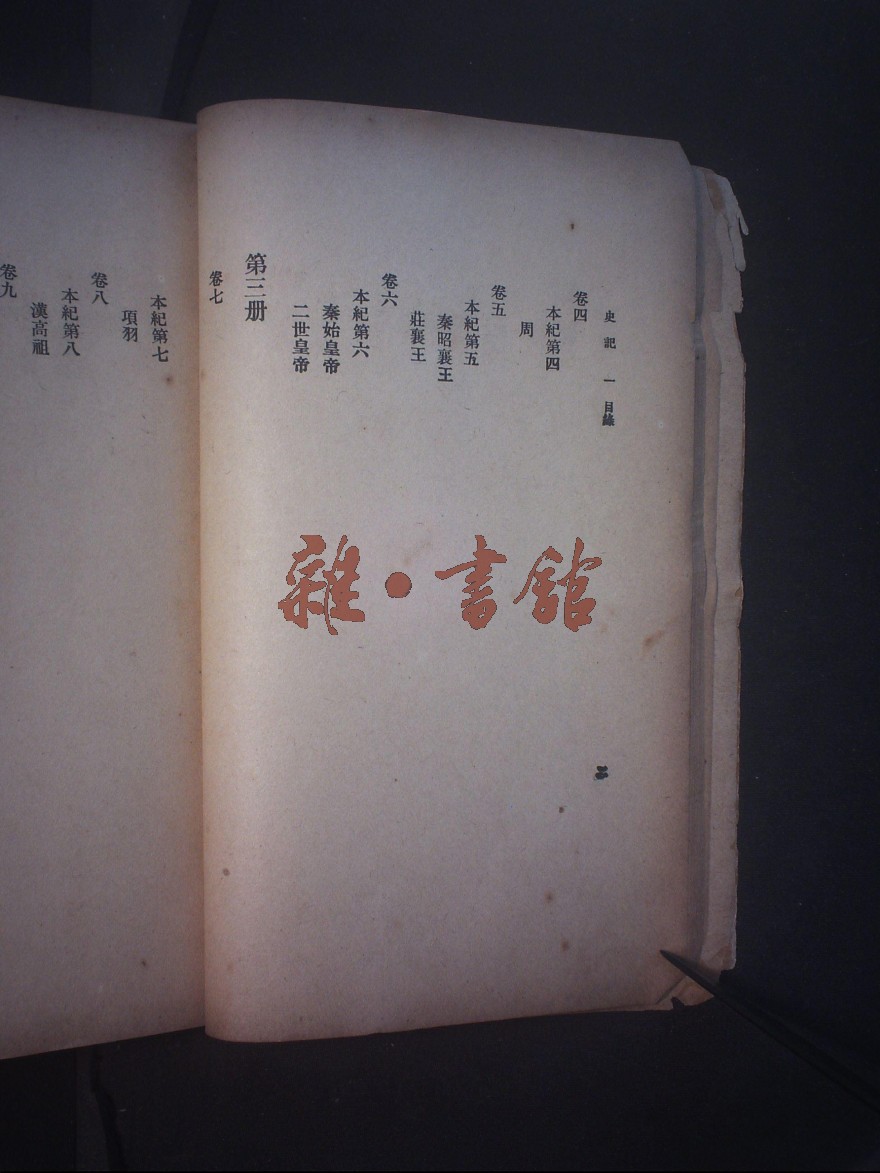 史記 一 目錄
二
卷四
本紀第四
周
卷五
本紀第五
秦昭襄王
莊襄王
卷六
本紀第六
秦始皇帝
二世皇帝
第三册
卷七
本紀第七
項羽
卷八
本紀第八
漢高祖
卷九
雜·書館